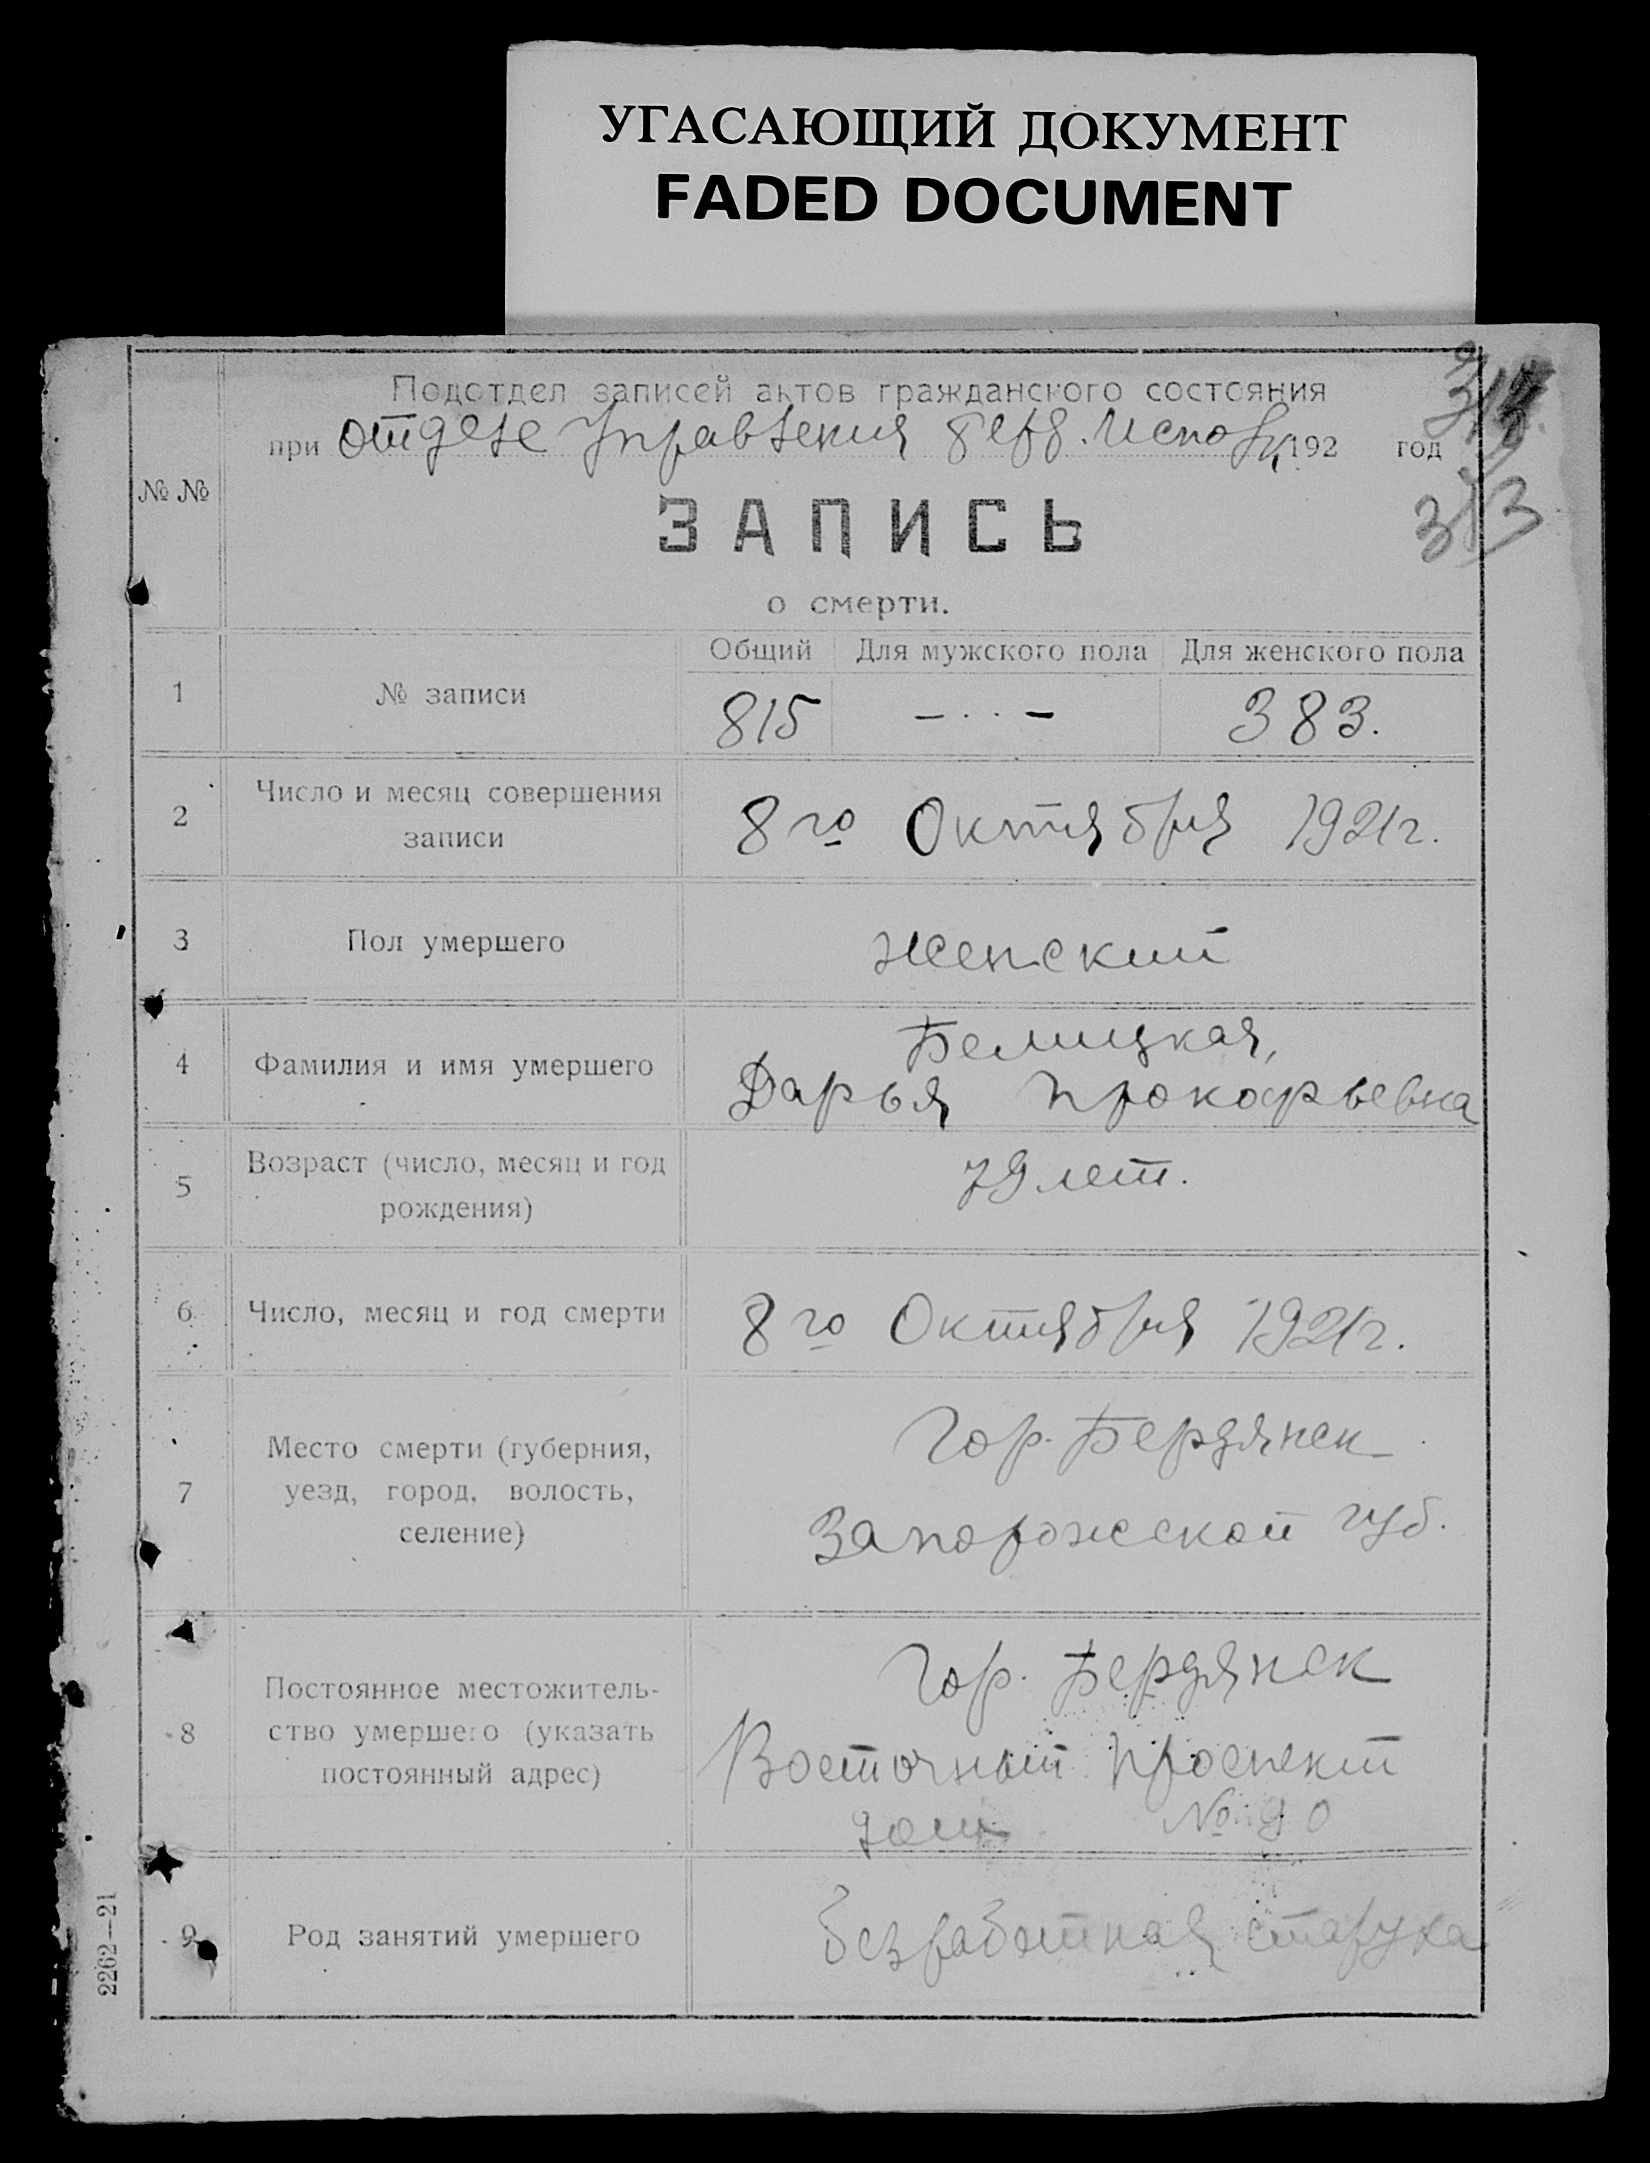 УГАСАЮЩИЙ ДОКУМЕНТ
FADED DOCUMENT
Подотдел записей актов гражданского состояния
при отделе Управления Берд. Исполк, 192 год
373
№ №
ЗАПИСЬ
о смерти.
Общий Для мужского пола Для женского пола
1 № записи 815 — · · — 383.
2 Число и месяц совершения записи
8го Октября 1921 г.
3 Пол умершего женский
Белицкая,
4 Фамилия и имя умершего
Дарья Прокофьевна
5 Возраст (число, месяц и год рождения)
79 лет.
6 Число, месяц и год смерти 8го Октября 1921 г.
7 Место смерти (губерния,
уезд, город, волость,
селение)
Гор. Бердянск
Запорожской губ.
8 Постоянное местожитель-
ство умершего (указать
постоянный адрес)
Гор. Бердянск
Восточный проспект
дом № 90
9 Род занятий умершего безработная старуха
2262—21